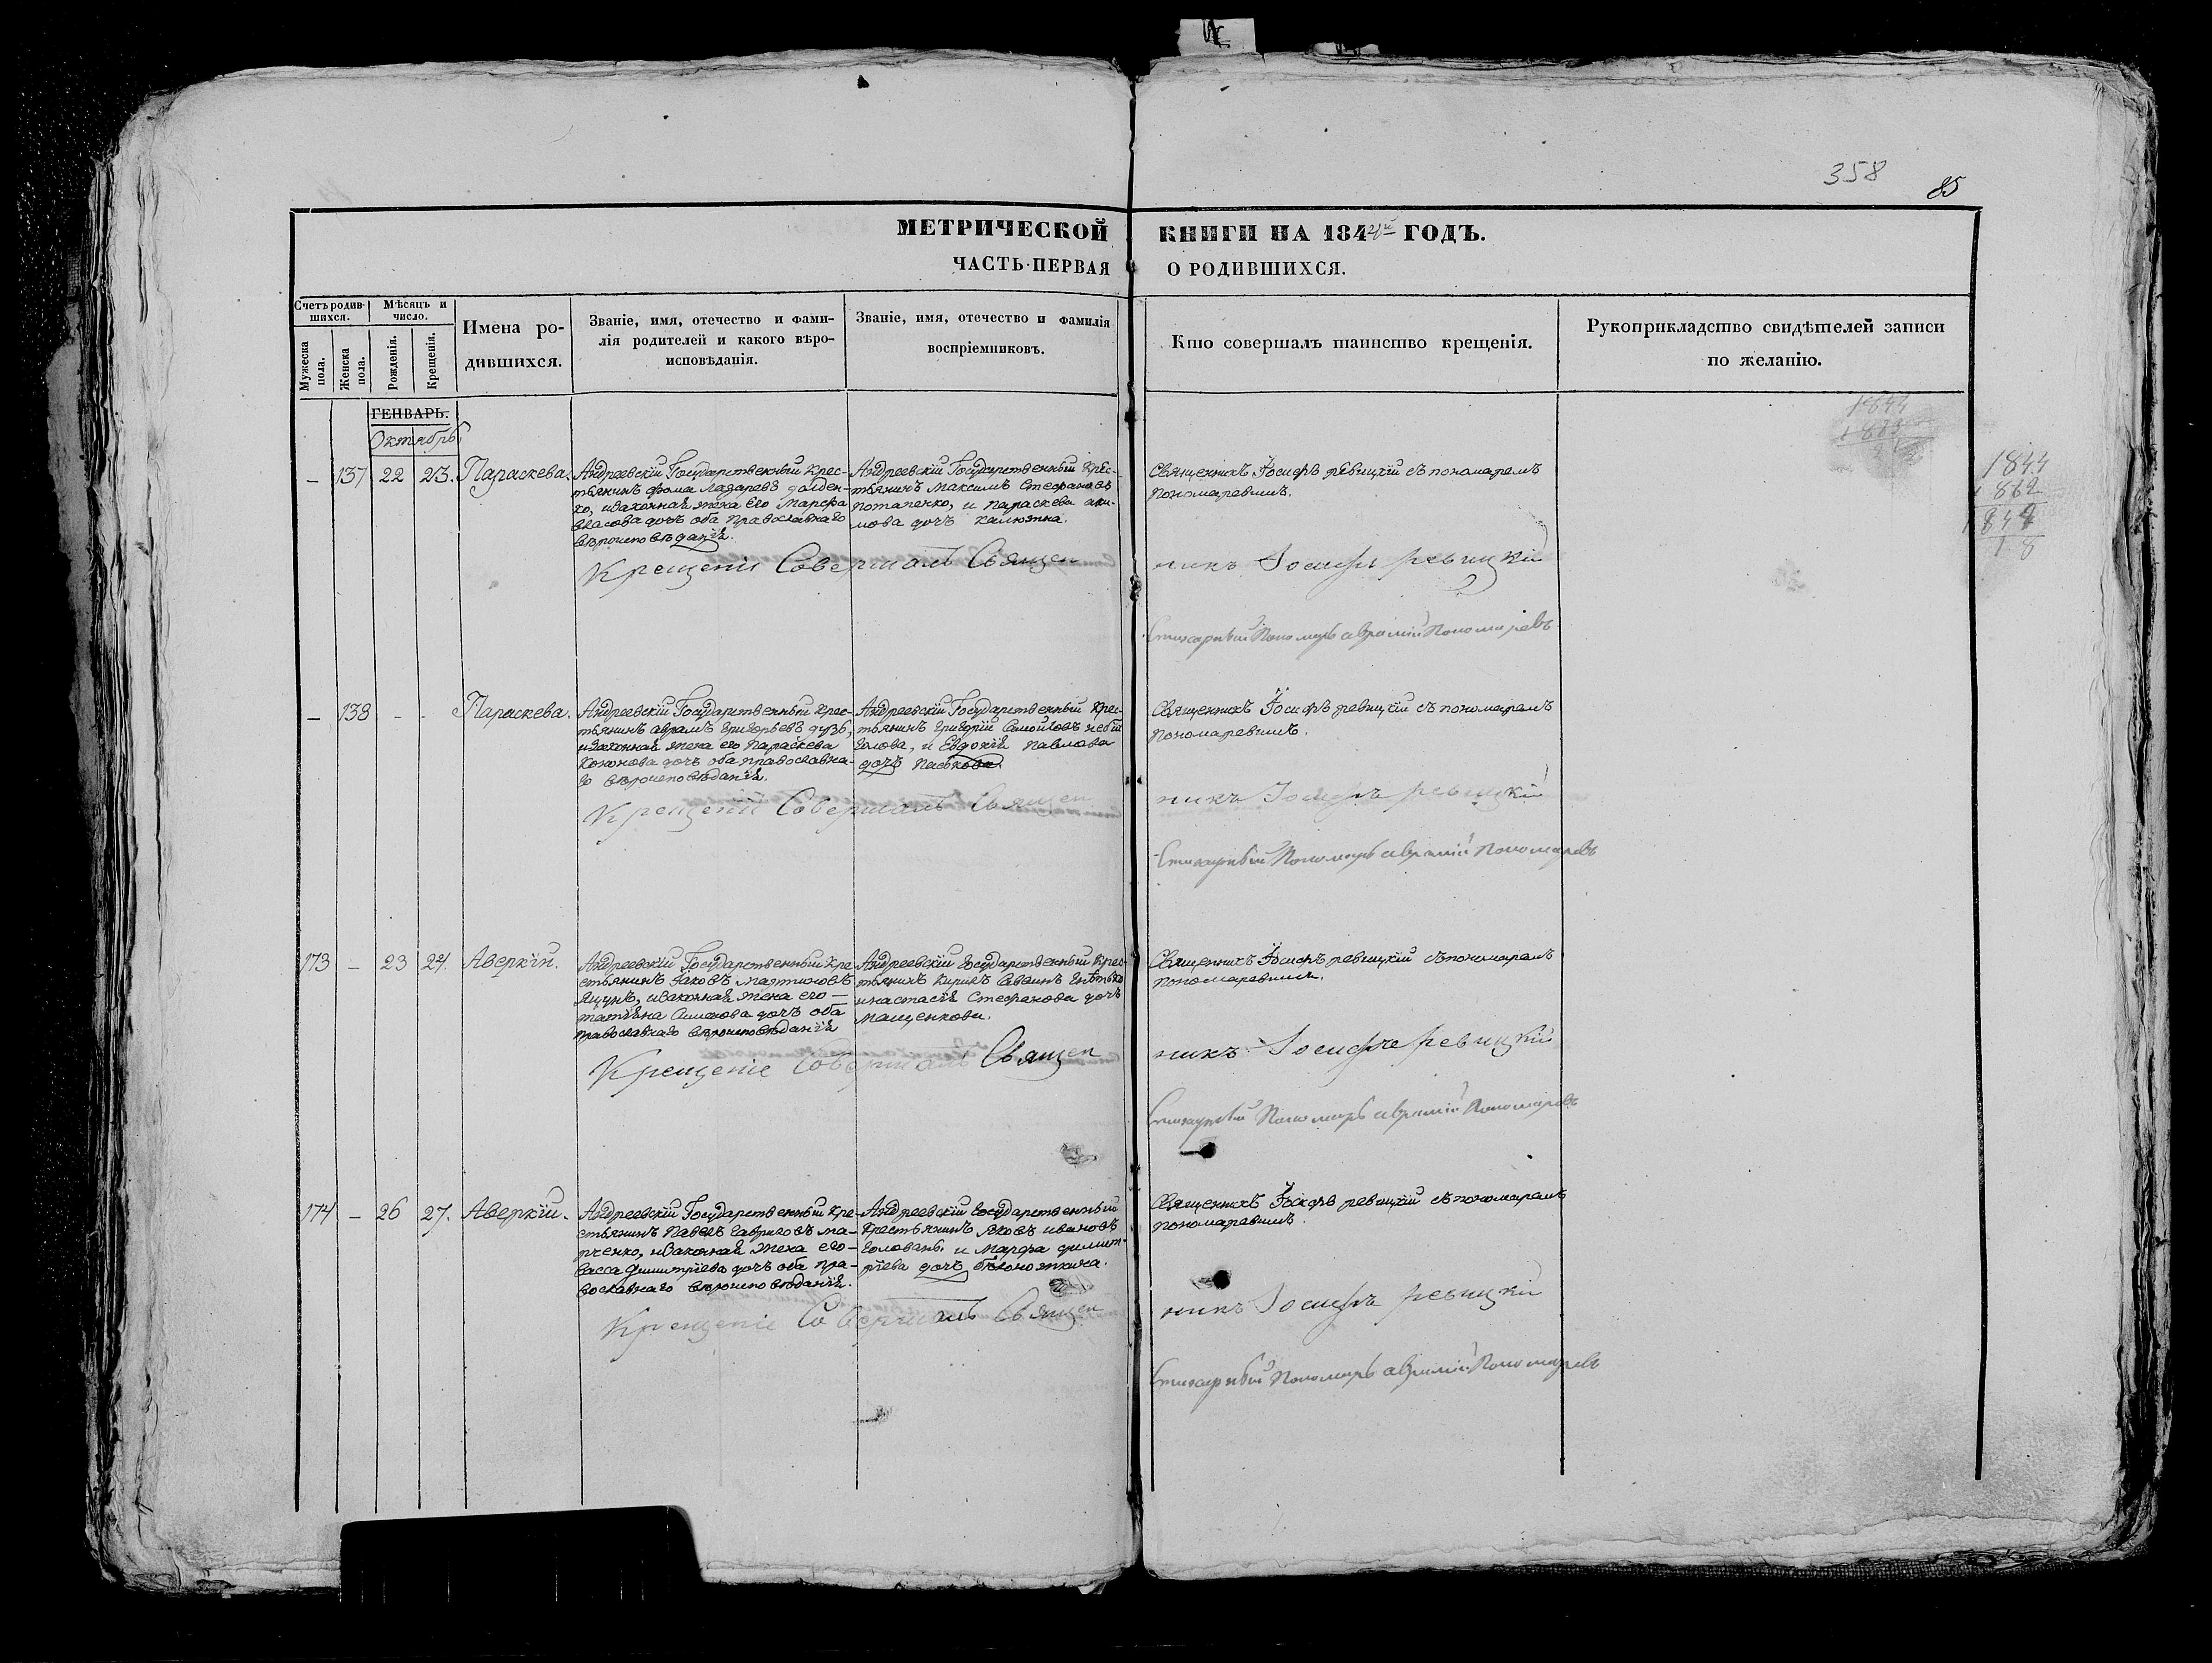 358
85
МЕТРИЧЕСКОЙ КНИГИ НА 1844й ГОДЪ.
ЧАСТЬ ПЕРВАЯ О РОДИВШИХСЯ.
Счетъ родив-
шихся.
Мужеска пола.
Женска пола.
Мѣсяцъ и
число.
Рожденія.
Крещенія.
Имена ро-
дившихся.
Званіе, имя, отечество и фами-
лія родителей и какого вѣро-
исповѣданія.
Званіе, имя, отечество и фамилія
воспріемниковъ.
Кто совершалъ таинство крещенія.
Рукоприкладство свидѣтелей записи
по желанію.
ГЕНВАРЬ.
Октябрь
– 137 22 23. Параскева.
Андреевскій Государственный Крес-
тьянинъ Фома Лазаревъ
Ко, изаконная жена Его Марфа
Власова дочь оба Православнаго
вѣроисповѣданія.
Андреевскій Государственный Крес-
тьянинъ Максимъ Стефановъ
Потапенко, и Параскева аки-
мова дочь
Священникъ Іосифъ Ревицкій съ пономаремъ
Пономаревымъ.
Крещеніе Совершалъ Священ
никъ Іосифъ Ревицкій
Стихарный Пономарь аврамій Пономаревъ
– 138 - - Параскева.
Андреевскій Государственный Крес-
тьянинъ аврамъ Григорьевъ
изаконная жена его Параскева
Кононова дочь оба православна-
го вѣроисповѣданія.
Андреевскій Государственный Крес-
тьянинъ Григорій Самойловъ
голова, и Евдокія Павлова
дочь
Священникъ Іосифъ ревицкій съ пономаремъ
Пономаревымъ.
Крещеніе Совершалъ Священ
никъ Іосифъ ревицкій
Стихарный Пономарь аврамій Пономаревъ
173 – 23 24. Аверкій.
Андреевскій Государственный Кре-
стьянинъ Іаковъ Мартиновъ
Яцунъ, изаконная жена его —
татіана Симонова дочь оба
Православнаго вѣроисповѣданія
Андреевскій Государственный Крес-
тьянинъ Кирилъ Саввинъ
инастасія Стефанова дочь
Мащенкова.
Священникъ Іосифъ ревицкій съ пономаремъ
пономаревымъ.
Крещеніе Совершалъ Священ
никъ Іосифъ Ревицкій
Стихарный Пономарь аврамій Пономаревъ
174 – 26 27. Аверкій.
Андреевскій Государственный Кре-
стьянинъ Павелъ Гавриловъ ма-
тченко, изаконная жена его –
Васса Димитріева дочь оба пра-
вославнаго вѣроисповѣданія.
Андреевскій Государственный
Крестьянинъ Яковъ ивановъ
Головань, и Марфа димит-
ріева дочь Бѣлоножкина.
Священникъ Іосифъ ревицкій съ пономаремъ
пономаревымъ.
Крещеніе Совершалъ Священ
никъ Іосифъ ревицкій
Стихарный Пономарь аврамій Пономаревъ
1844